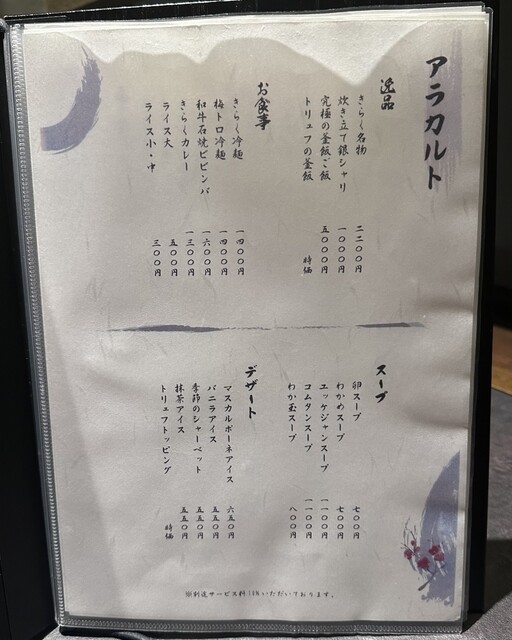 アラカルト
逸品
きらく名物 二二〇〇円
炊き立て銀シャリ 一〇〇〇円
究極の釜飯ご飯 五〇〇〇円
トリュフの釜飯 時価
お食事
きらく冷麺 一四〇〇円
梅トロ冷麺 一四〇〇円
和牛石焼ビビンバ 一六〇〇円
きらくカレー 一三〇〇円
ライス大 五〇〇円
ライス小・中 三〇〇円
スープ
卵スープ 七〇〇円
わかめスープ 七〇〇円
ユッケジャンスープ 一一〇〇円
コムタンスープ 一一〇〇円
わか玉スープ 八〇〇円
デザート
マスカルポーネアイス 六五〇円
バニラアイス 五五〇円
季節のシャーベット 五五〇円
抹茶アイス 五五〇円
トリュフトッピング 時価
※別途サービス料いただいております。